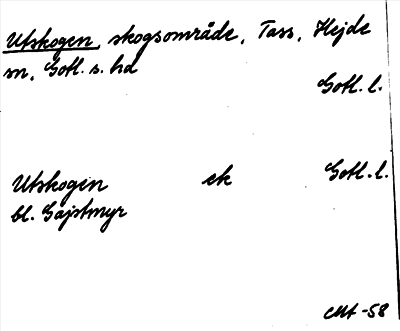 Utskogen, skogsområde, Tass, Hejde
sn, Gotl. s. hd
Gotl. l.
Utskogen ek Gotl. l.
bl. Gajstmyr
-58